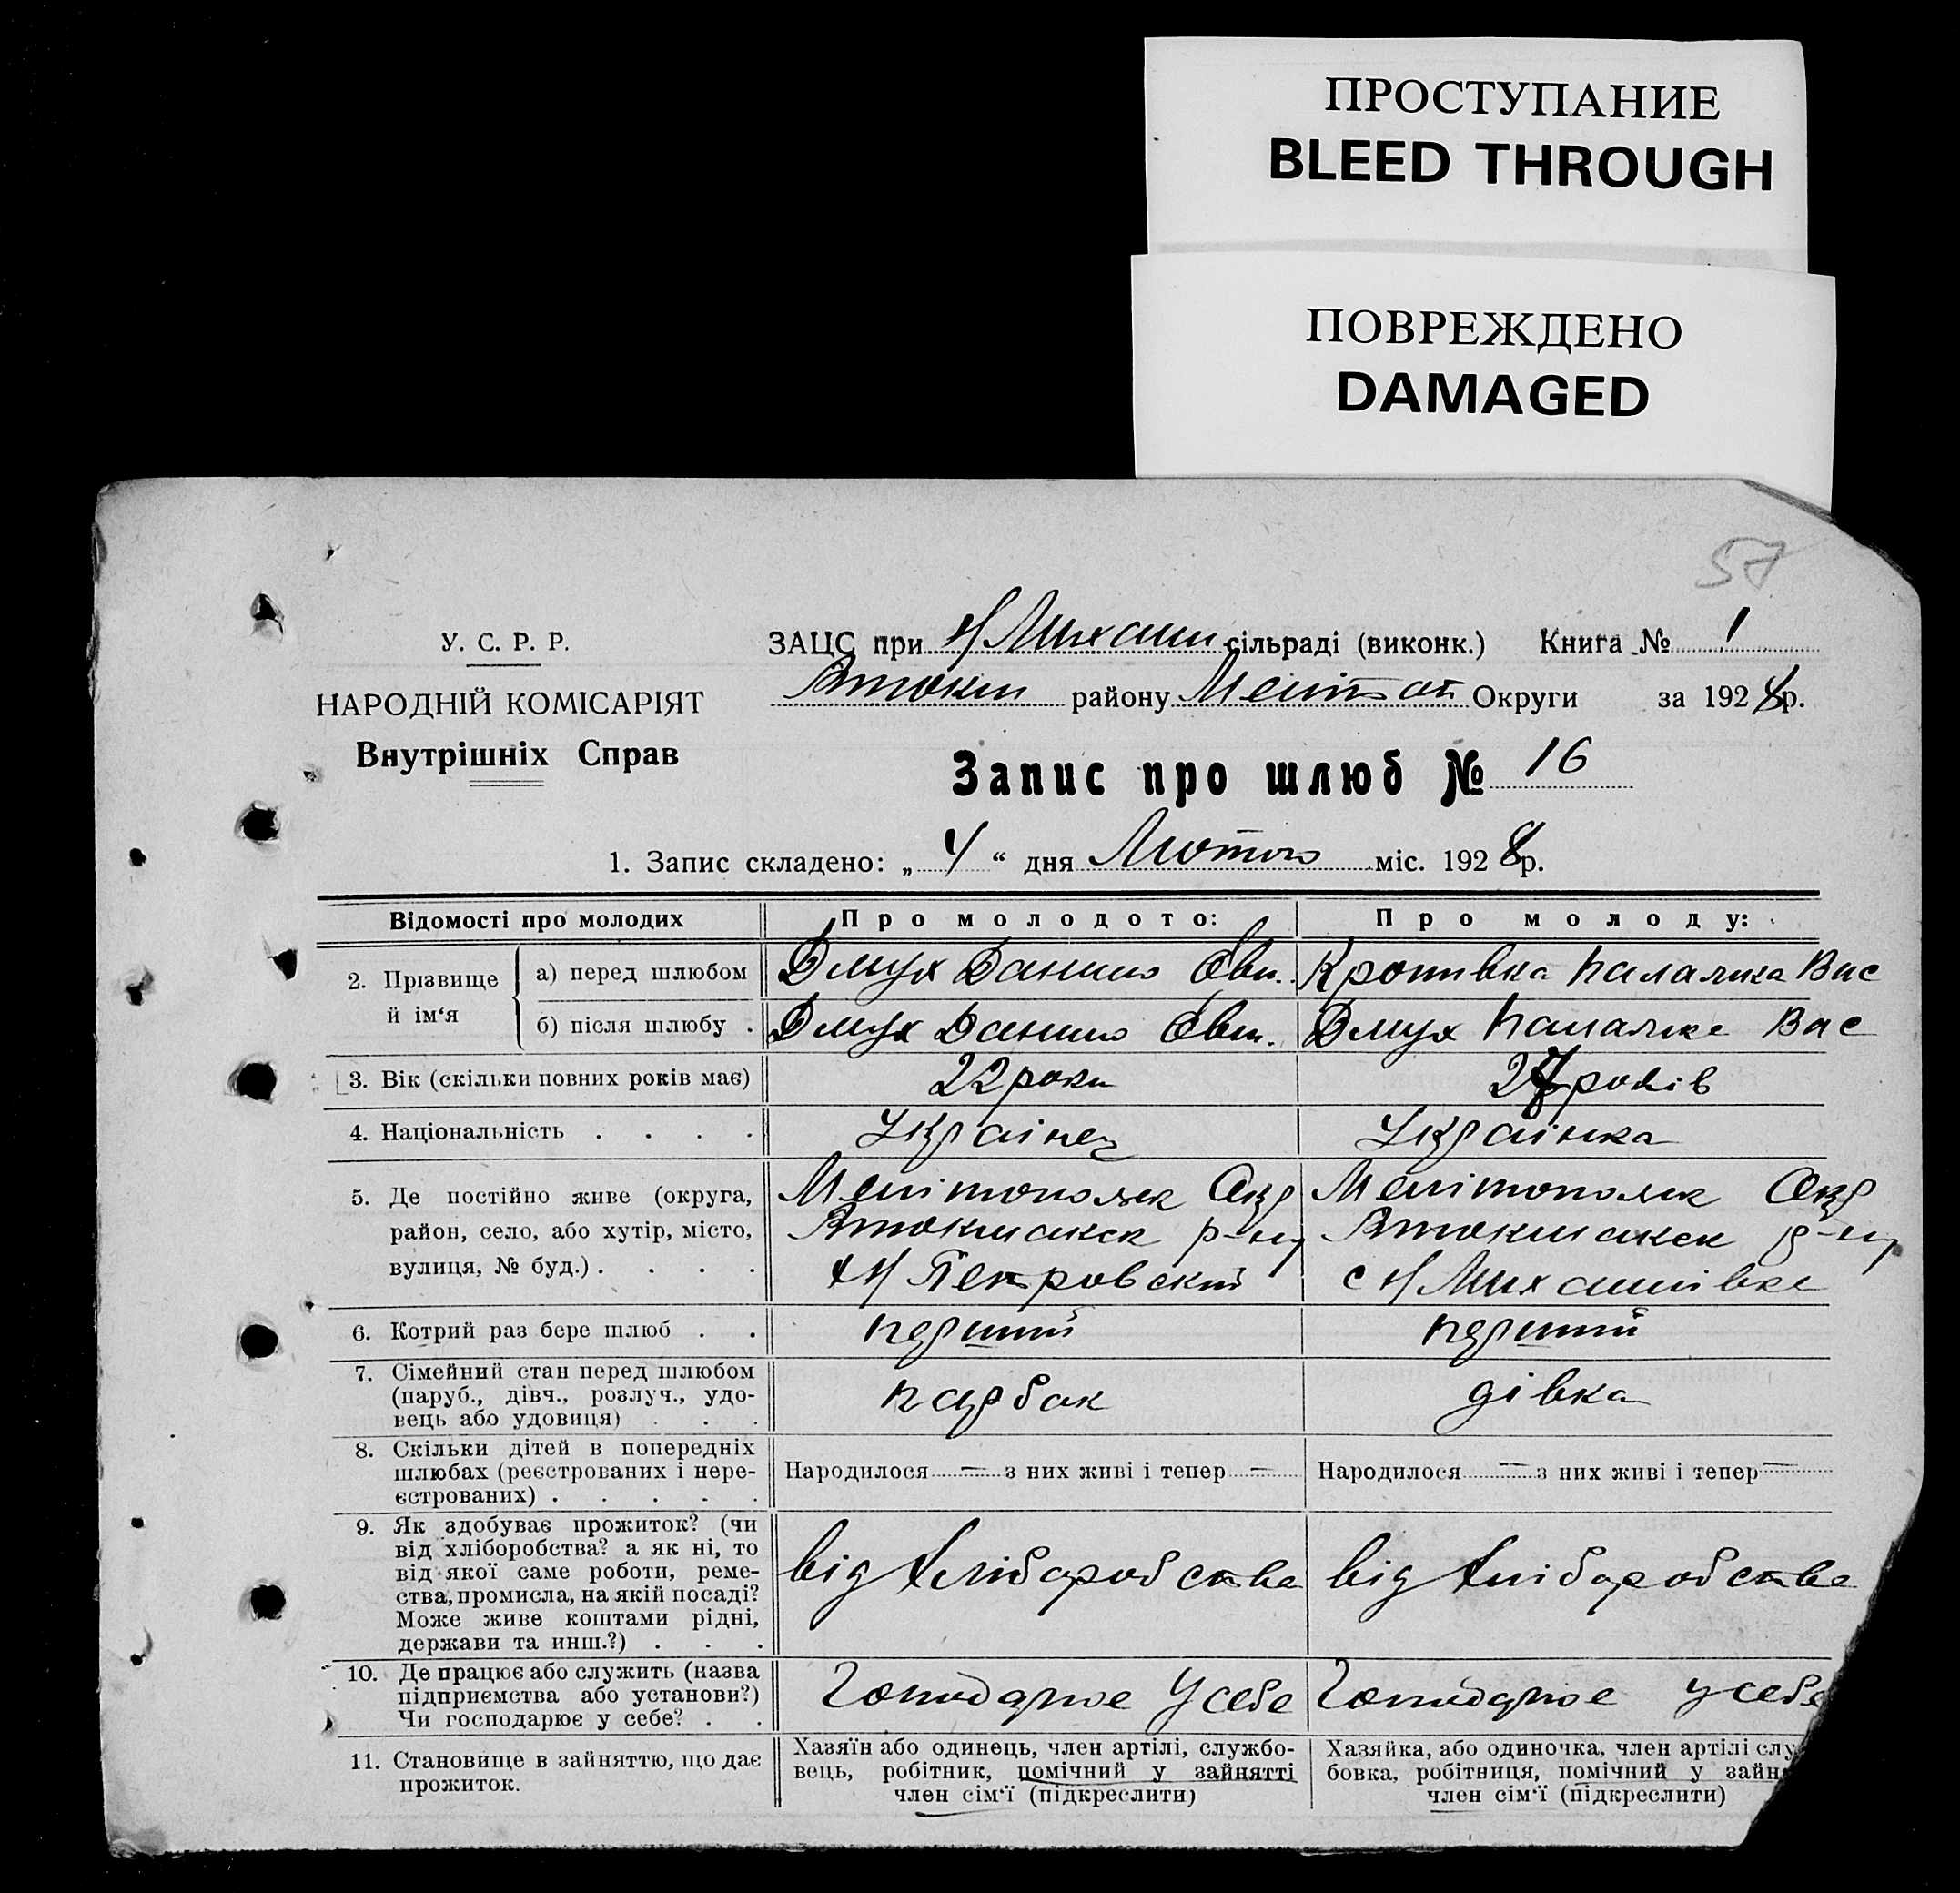 ПРОСТУПАНИЕ
BLEED THROUGH
ПОВРЕЖДЕНО
DAMAGED
57
У. С. Р. Р.
НАРОДНІЙ КОМІСАРІЯТ
Внутрішніх Справ
ЗАЦС при Н Михайл сільраді (виконк.) Книга № 1
Втокм району Меліт ок Округи за 1928 р.
Запис про шлюб № 16
1. Запис складено: „ 4 “ дня Лютого міс. 1928 р.
Відомості про молодих
Про молодого:
Про молоду:
2. Прізвище й ім‘я
а) перед шлюбом
Дмух Данило Овт.
Кропивка Палажка Вас
б) після шлюбу .
Дмух Данило Овт.
Дмух Палажка Вас
3. Вік (скільки повних років має)
22 роки
27 років
4. Національність . . . .
Українец
Українка
5. Де постійно живе (округа,
район, село, або хутір, місто,
вулиця, № буд.) . . . .
Мелітопольск Окр
Втокмакск р-ну
х Н Петровский
Мелітопольск Окр
Втокмакск р-ну
с Н Михайлівка
6. Котрий раз бере шлюб . .
перший
перший
7. Сімейний стан перед шлюбом
(паруб., дівч., розлуч., удо-
вець або удовиця) . . .
парубак
дівка
8. Скільки дітей в попередніх
шлюбах (реєстрованих і нере-
єстрованих) . . . . .
Народилося — з них живі і тепер —
Народилося — з них живі і тепер —
9. Як здобуває прожиток? (чи
від хліборобства? а як ні, то
від якої саме роботи, реме-
ства, промисла, на якій посаді?
Може живе коштами рідні,
держави та инш.?) . . .
від хліборобства
від хліборобства
10. Де працює або служить (назва
підприємства або установи?)
Чи господарює у себе? . .
Господарює у себе
Господарює у себе
11. Становище в зайняттю, що дає
прожиток.
Хазяїн або одинець, член артілі, службо-
вець, робітник, помічний у зайнятті
член сім‘ї (підкреслити)
Хазяйка, або одиночка, член артілі слу
бовка, робітниця, помічний у зайн
член сім‘ї (підкреслити)